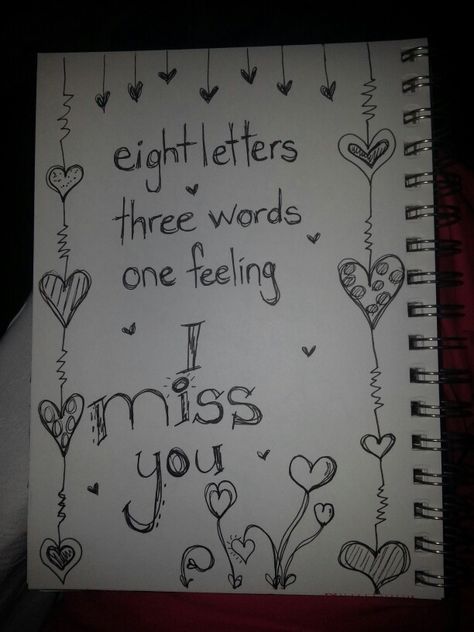 eight letters
three words
one feeling
I
miss
you